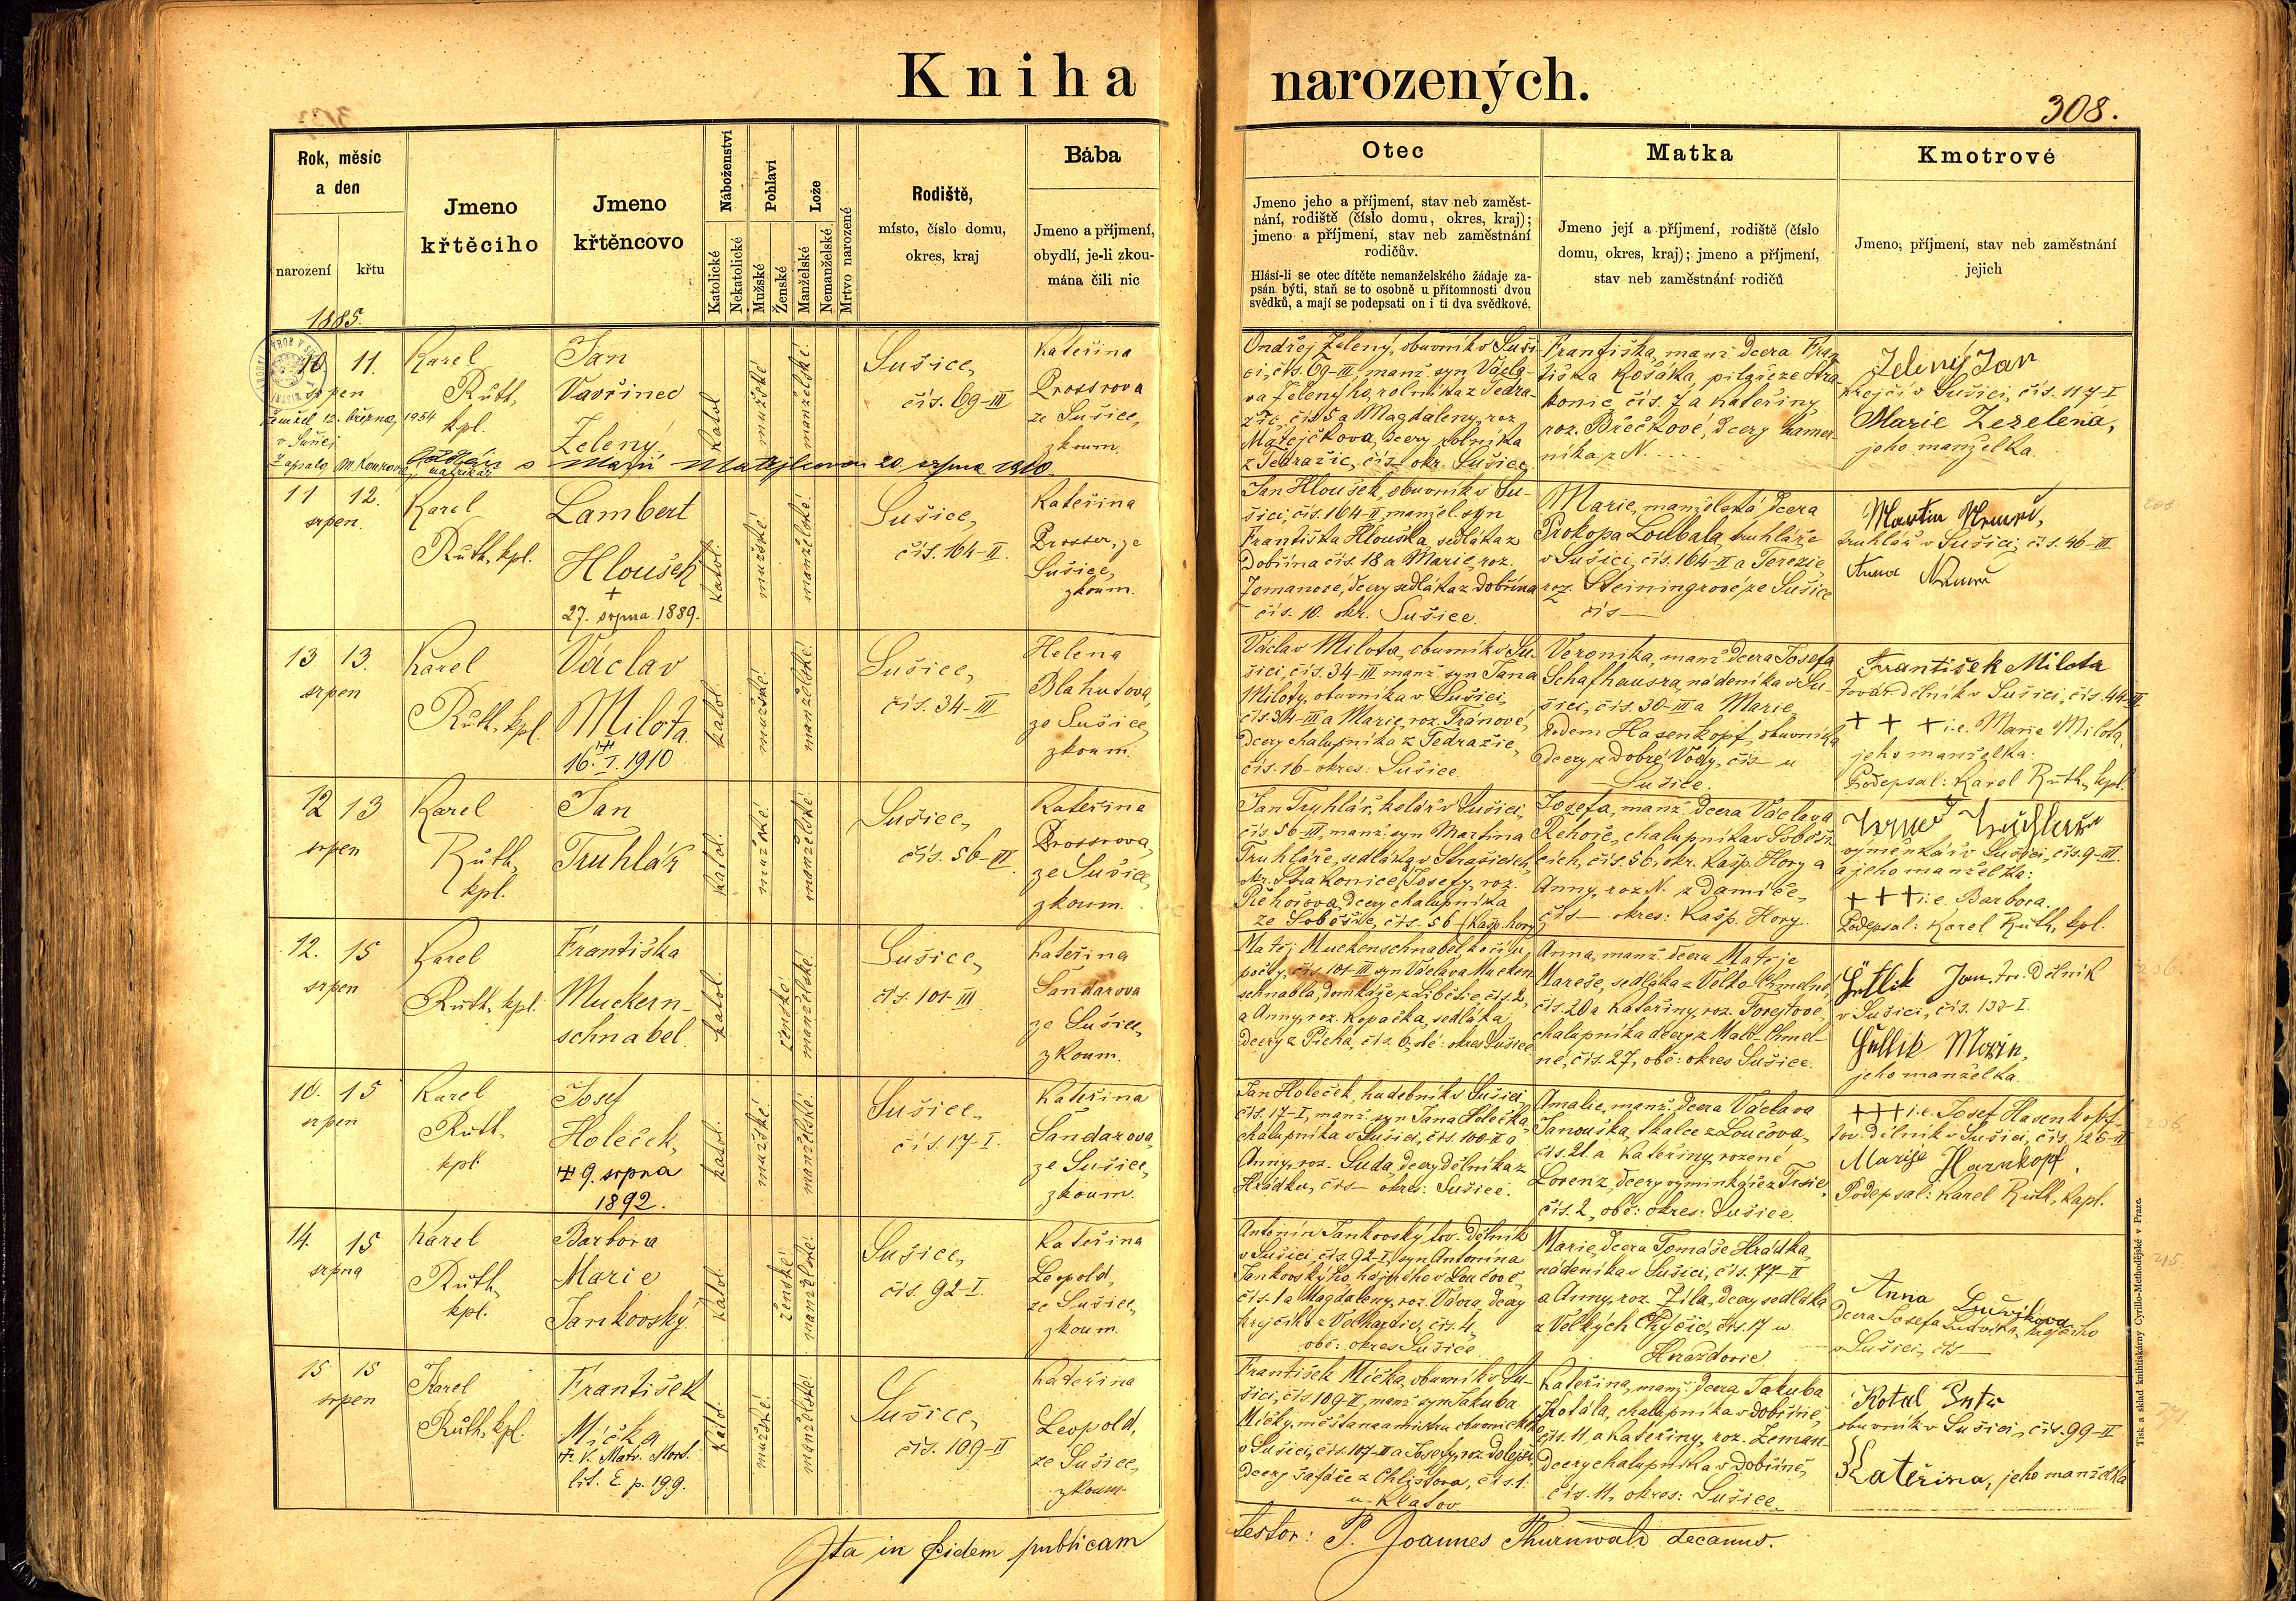 Kniha narozených.
308.
Rok, měsíc
a den
narození
křtu
1885.
Jmeno
křtěcího
Jmeno
křtěncovo
Náboženství
Katolické
Nekatolické
Pohlaví
Mužské
Ženské
Lože
Manželské
Nemanželské
Mrtvo narozené
Rodiště,
místo, číslo domu,
okres, kraj
Bába
Jmeno a příjmení,
obydlí, je-li zkou-
mána čili nic
Otec
Jmeno jeho a příjmení, stav neb zaměst-
nání, rodiště (číslo domu, okres, kraj);
jmeno a příjmení, stav neb zaměstnání
rodičův.
Hlásí-li se otec dítěte nemanželského žádaje za-
psán býti, staň se to osobně u přítomnosti dvou
svědků, a mají se podepsati on i ti dva svědkové.
Matka
Jmeno její a příjmení, rodiště (číslo
domu, okres, kraj); jmeno a příjmení,
stav neb zaměstnání rodičů
Kmotrové
Jmeno, příjmení, stav neb zaměstnání
jejich
10 11.
srpen
zemřel 12. března 1954
v Sušici
Zapsala
Karel
Ruth,
kpl.
Jan
Vavřinec
Zelený
s Marií Matějkovou 20. srpna 1910.
katol.
mužské
manželské
Sušice,
čís. 69-III
Kateřina
Prossrova
ze Sušice,
zkoum.
Ondřej Zelený, obuvník v Suši-
ci, čís. 69-III, manž. syn Václa-
va Zeleného, rolníka z Tedra-
žic, čís. 5 a Magdaleny, roz.
Matějčkova, dcery rolníka
z Tedražic, čís. — okr. Sušice.
Františka, manž. dcera Fran-
tiška Košáka, pilaře ze Stra-
konic čís. 7 a Kateřiny,
roz. Brečkové, dcery kamen-
níka z N.
Zelený Jan
krejčí v Sušici, čís. 117-I
Marie Zezelena,
jeho manželka.
11 12.
srpen.
Karel
Ruth, kpl.
Lambert
Hloušek
+
27. srpna 1889.
katol.
mužské
manželské
Sušice,
čís. 164-II.
Kateřina
Prosser, ze
Sušice,
zkoum.
Jan Hloušek, obuvník v Su-
šici, čís. 164-II, manžel. syn
Františka Hlouška, sedláka z
Dobřína čís. 18 a Marie, roz.
Zemanové, dcery sedláka z Dobřína
čís. 10. okr. Sušice.
Marie, manželská dcera
Prokopa Loubala, truhláře
v Sušici, čís. 164-II a Terezie,
roz. Steiningrové, ze Sušice
čís —
Martin Nemeč,
truhlář v Sušici, čís. 46-III
Anna
13 13.
srpen
Karel
Ruth, kpl.
Václav
Milota
16. I. 1910
katol.
mužské
manželské
Sušice,
čís. 34-III
Helena
Blahutova,
ze Sušice,
zkoum.
Václav Milota, obuvník v Su-
šici, čís. 34-III manž. syn Jana
Miloty, obuvníka v Sušici,
čís. 34-III a Marie, roz. Fránové,
dcery chalupníka z Tedražic,
čís. 16 - okres: Sušice.
Veronika, manž. dcera Josefa
Schafhausra, nádeníka v Su-
šici, čís. 30-III a Marie,
rodem Hasenkopf, obuvníka
dcery z Dobré Vody, čís — u
Sušice.
František Milota
továr. dělník v Sušici, čís. 44-III
+ + + i.e. Marie Milota,
jeho manželka:
Podepsal: Karel Ruth, kpl.
12 13
srpen
Karel
Ruth,
kpl.
Jan
Truhlář
katol.
mužské
manželské
Sušice,
čís. 56-III.
Kateřina
Prossrova,
ze Sušice,
zkoum.
Jan Truhlář, kolář v Sušici,
čís. 56-III, manž. syn Martina
Truhláře, sedláka v Strašicích,
okr. Strakonice a Josefy, roz.
Řehořova, dcery chalupníka
ze Soběšic, čís. 56 (Kašp. hory)
Josefa, manž. dcera Václava
Řehoře, chalupníka v Soběši-
cích, čís. 56, okr. Kašp. Hory a
Anny, roz. N. z Damíče,
čís — okres: Kašp. Hory.
výměnkář v Sušici, čís. 9-III.
a jeho manželka:
+ + + i.e. Barbora.
Podepsal: Karel Ruth, kpl.
12. 15
srpen
Karel
Ruth, kpl.
Františka
Muckern-
schnabel.
katol.
ženské
manželské
Sušice,
čís. 101-III
Kateřina
Šandarova
ze Sušice,
zkoum.
Matěj Muckenschnabel, kočí u
pošty, čís. 101-III syn Václava Mucken-
schnabla, domkáře z Libětic, čís. 2,
a Anny, roz. Kopačka, sedláka
dcery z Picha, čís. 6, obé: okres Sušice
Anna, manž. dcera Matěje
Mareše, sedláka z Velko-Chmelné,
čís. 20 a Kateřiny, roz. Forejtové,
chalupníka dcery z Malo-Chmel-
né, čís. 27, obé: okres Sušice.
Jan, tov. dělník
v Sušici, čís. 137-I.
Marie,
jeho manželka.
10. 15
srpen
Karel
Ruth,
kpl.
Josef
Holeček,
9. srpna
1892.
katol.
mužské
manželské
Sušice,
čís. 17-I.
Kateřina
Šandarova,
ze Sušice,
zkoum.
Jan Holeček, hudebník v Sušici,
čís. 17-I, manž. syn Jana Holečka,
chalupníka v Sušici, čís. 100-II a
Anny, roz. Suda, dcery dělníka z
Hrádku, čís — okres: Sušice.
Amalie, manž. dcera Václava
Janouška, tkalce z Loučova,
čís. 21. a Kateřiny, rozené
Lorenz, dcery výminkáře z Trsic,
čís. 2, obé: okres: Sušice
+++ i.e. Josef Hasenkopf
tov. dělník v Sušici, čís. 126-II
Marije Hasnkopf.
Podepsal: Karel Ruth, kapl.
14. 15
srpna
Karel
Ruth,
kpl.
Barbora
Marie
Jankovský
katol.
ženské
manželské
Sušice,
čís. 92-I.
Kateřina
Leopold,
ze Sušice,
zkoum.
Antonín Jankovský, tov. dělník
v Sušici, čís. 92-I, syn Antonína
Jankovského, hajného v Loučové,
čís. 1 a Magdaleny, roz. Vácra, dcery
krejčího z Volšař­ic, čís. 4,
obé: okres Sušice
Marie, dcera Tomáše Hrádka,
nádeníka v Sušici, čís. 77-II
a Anny, roz. Žíla, dcery sedláka
z Velkých Chyčic, čís. 17 u
Horažďovic
Anna Ludvíkova
dcera Josefa Ludvíka, krejčího
v Sušici, čís —
15 15
srpen
Karel
Ruth, kpl.
František
Míčka
V. Matr. Mort.
lit. E. p. 199.
katol.
mužské
manželské
Sušice,
čís. 109-II
Kateřina
Leopold,
ze Sušice,
zkoum.
František Míčka, obuvník v Su-
šici, čís. 109-II, manž. syn Jakuba
Míčky, měšťana a mistra obuvnického
v Sušici, čís. 107-II a Josefy, roz. Dolejší,
dcery šafáře z Chlístova, čís. 1.
u Klatov
Kateřina, manž. dcera Jakuba
Kotála, chalupníka v Dobříně,
čís. 11, a Kateřiny, roz. Zeman-
dcery chalupníka v Dobříně,
čís. 11, okres: Sušice
Kotal
obuvník v Sušici, čís. 99-II
Kateřina, jeho manželka
Ita in fidem publicam
testor: P. Joannes Thurnwald decanus.
Tisk a sklad knihtiskárny Cyrillo-Methodějské v Praze.